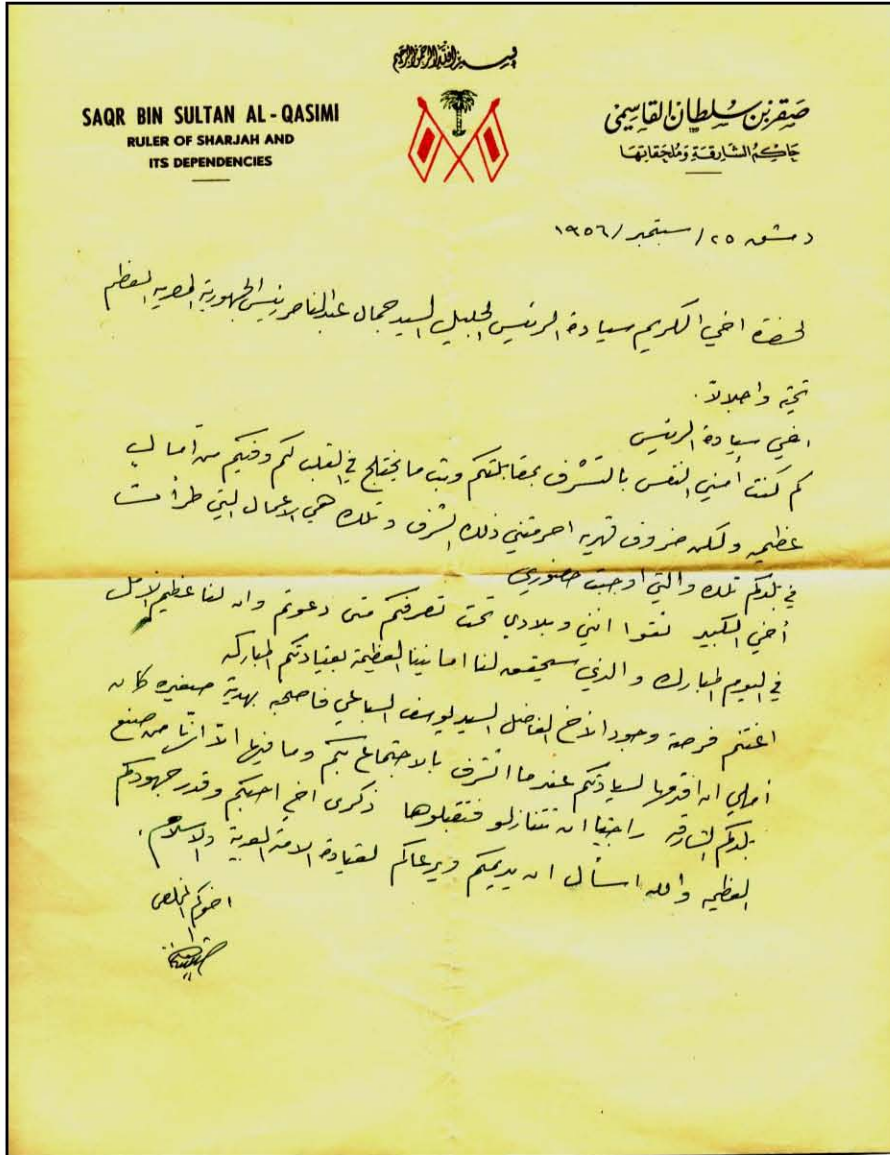 بسم الله الرحمن الرحيم
SAQR BIN SULTAN AL-QASIMI
RULER OF SHARJAH AND
ITS DEPENDENCIES
صقر بن سلطان القاسمي
حاكم الشارقة وملحقاتها
دمشق ٢٥/سبتمبر/١٩٥٦
لحضرة اخي الكريم سيادة الرئيس الجليل السيد جمال عبد الناصر رئيس الجمهورية المصرية المعظم
تحية واجلالاً.
اخي سيادة الرئيس
كم كنت أمني النفس بالتشرف بمقابلتكم وبث ما يختلج في القلب لكم وفيكم من آمال
عظيمه ولكن ضروف قهريه احرمتني ذلك الشرف وتلك هي الاعمال التي طرأت
في بلدكم تلك والتي اوجبت حضوري
أخي الكبير ثقوا انني وبلادي تحت تصرفكم متى دعوتم وان لنا عظيم الامل
في اليوم المبارك والذي سيحقق لنا امانينا العظيمة بقيادتكم المباركه
اغتنم فرصة وجود الاخ الفاضل السيد يوسف السباعي فاصحبه بهدية صغيره كان
املي ان اقدمها لسيادتكم عندما اتشرف بالاجتماع بكم وما فيها الا انها من صنع
بلدكم الشارقه راجيا ان تتنازلو فتقبلوها ذكرى اخ احبكم وقدر جهودكم
العظيمه والله اسأل ان يديمكم ويرعاكم لقيادة الامة العربية والاسلام.
اخوكم المخلص